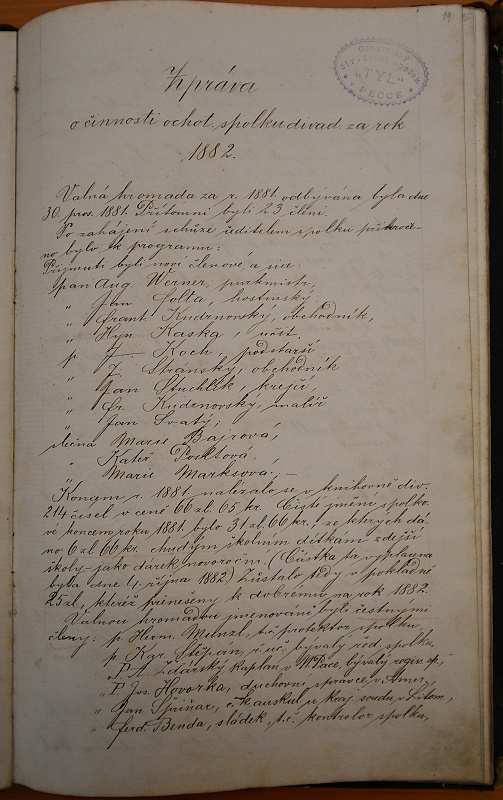 Ochotnický
divadelní spolek
"TYL"
PECCE
Zpráva
o činnosti ochot. spolku divad. za rok
1882.
Valná hromada za r. 1881. odbývána byla dne
30. pros. 1881. Přítomni byli 23 členi.
Po zahájení schůze ředitelem spolku přikroče-
no bylo k programu:
Přijmuti byli noví členové, a sice:
pan Aug. Werner, purkmistr,
" Jan Šolta, hostinský,
" Frant. Kudrnovský, obchodník,
" Hyn. Kaska, učit.
p. F. Koch, podstarší
" J. Stránský, obchodník
" Jan Stuchlík, krejčí,
" Fr. Kudrnovský, malíř
" Jan Svatý;
slečna Marie Bajrová,
" Kateř. Posktová,
" Marie Marksová; –
Koncem r. 1881. nalézalo se v knihovně div.
214 čísel v ceně 66 zl. 65 kr. Čisté jmění spolko-
vé koncem roku 1881. bylo 31 zl. 66 kr.; ze kterých dá-
no 6 zl. 66 kr. chudým školním dítkám zdejší
školy – jako dárek novoroční. (Částka ta vyplacena
byla dne 4. října 1882) Zůstalo tedy v pokladně
25 zl., kteréž přenešeny k dobrému na rok 1882.
Valnou hromadou jmenováni byli čestnými
členy: p. Herm. Menzl, t. č. protektor spolku,
p. Kar. Štěpán, ř. uč. bývalý řed. spolku,
" P. A. Žďárský kaplan v N. Pace, bývalý regis. sp.,
" P. Jos. Hovorka, duchovní správce v Americe,
" Jan Špinar, c. k. auskul. u kraj. soudu v Litom.,
" Ferd. Benda, sládek, t. č. kontrolor spolku,